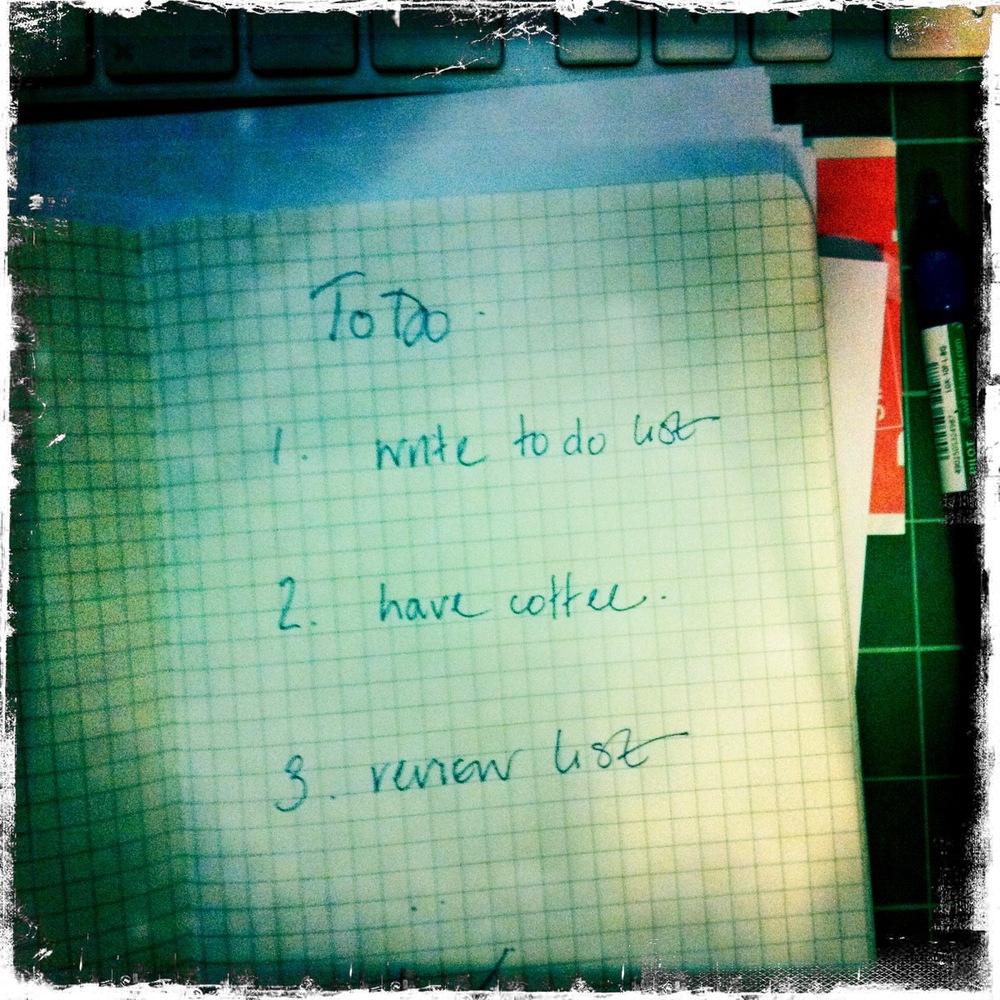 To Do.
1. write to do list
2. have coffee.
3. review list
PILOT